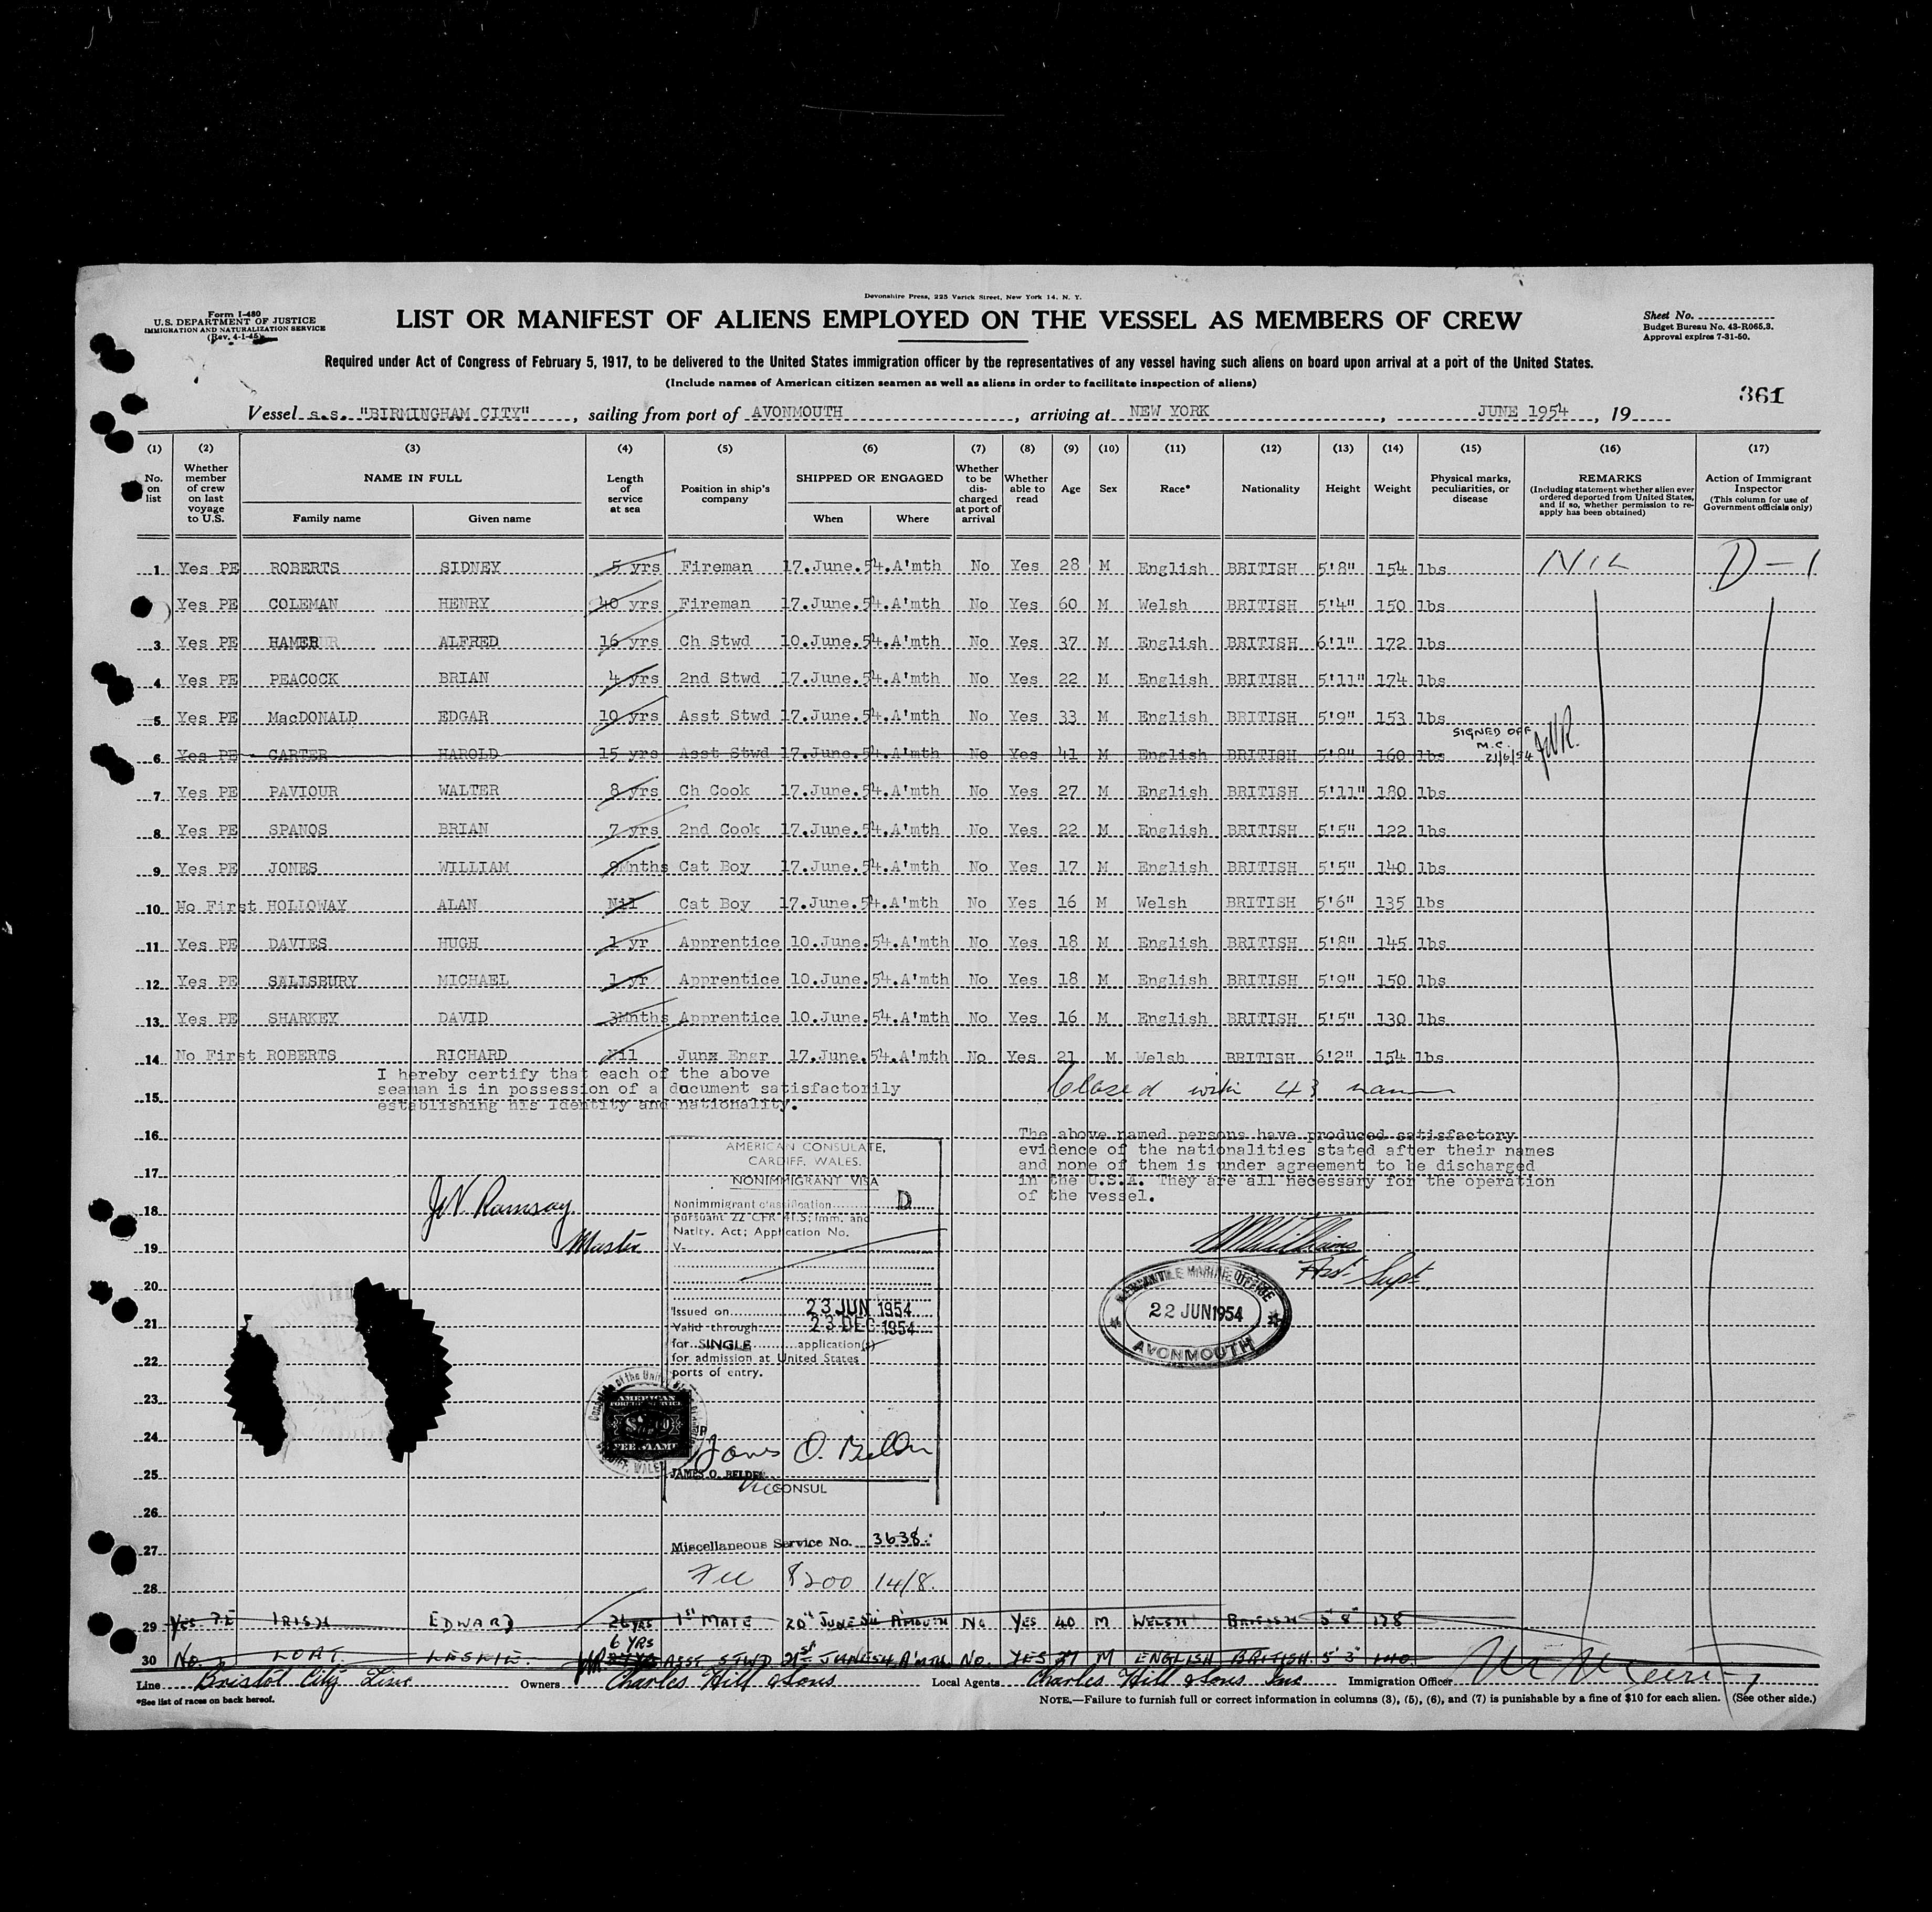 Devonshire Press, 225 Varick Street, New York 14, N. Y.
Form I-480
U.S. DEPARTMENT OF JUSTICE
IMMIGRATION AND NATURALIZATION SERVICE
(Rev. 4-1-45)
LIST OR MANIFEST OF ALIENS EMPLOYED ON THE VESSEL AS MEMBERS OF CREW
Sheet No.
Budget Bureau No. 43-R065.3.
Approval expires 7-31-50.
Required under Act of Congress of February 5, 1917, to be delivered to the United States immigration officer by the representatives of any vessel having such aliens on board upon arrival at a port of the United States.
(Include names of American citizen seamen as well as aliens in order to facilitate inspection of aliens)
361
Vessel s.s. "BIRMINGHAM CITY", sailing from port of AVONMOUTH, arriving at NEW YORK, JUNE 1954, 19
(1) (2) (3) (4) (5) (6) (7) (8) (9) (10) (11) (12) (13) (14) (15) (16) (17)
No. on list
Whether member of crew on last voyage to U.S.
NAME IN FULL
Family name
Given name
Length of service at sea
Position in ship's company
SHIPPED OR ENGAGED
When
Where
Whether to be discharged at port of arrival
Whether able to read
Age
Sex
Race*
Nationality
Height
Weight
Physical marks, peculiarities, or disease
REMARKS
(Including statement whether alien ever ordered deported from United States, and if so, whether permission to reapply has been obtained)
Action of Immigrant Inspector
(This column for use of Government officials only)
1 Yes PE ROBERTS SIDNEY 5 yrs Fireman 17.June.54.A'mth No Yes 28 M English BRITISH 5'8" 154 lbs Nil D-1
Yes PE COLEMAN HENRY 40 yrs Fireman 17.June.54.A'mth No Yes 60 M Welsh BRITISH 5'4" 150 lbs
3 Yes PE HAMER ALFRED 16 yrs Ch Stwd 10.June.54.A'mth No Yes 37 M English BRITISH 6'1" 172 lbs
4 Yes PE PEACOCK BRIAN 4 yrs 2nd Stwd 17.June.54.A'mth No Yes 22 M English BRITISH 5'11" 174 lbs
5 Yes PE MacDONALD EDGAR 10 yrs Asst Stwd 17.June.54.A'mth No Yes 33 M English BRITISH 5'9" 153 lbs
6 Yes PE CARTER HAROLD 15 yrs Asst Stwd 17.June.54.A'mth No Yes 41 M English BRITISH 5'8" 160 lbs SIGNED OFF M.C. 21/6/54 JWR.
7 Yes PE PAVIOUR WALTER 8 yrs Ch Cook 17.June.54.A'mth No Yes 27 M English BRITISH 5'11" 180 lbs
8 Yes PE SPANOS BRIAN 7 yrs 2nd Cook 17.June.54.A'mth No Yes 22 M English BRITISH 5'5" 122 lbs
9 Yes PE JONES WILLIAM 9Mnths Cat Boy 17.June.54.A'mth No Yes 17 M English BRITISH 5'5" 140 lbs
10 No First HOLLOWAY ALAN Nil Cat Boy 17.June.54.A'mth No Yes 16 M Welsh BRITISH 5'6" 135 lbs
11 Yes PE DAVIES HUGH 1 yr Apprentice 10.June.54.A'mth No Yes 18 M English BRITISH 5'8" 145 lbs
12 Yes PE SALISBURY MICHAEL 1 yr Apprentice 10.June.54.A'mth No Yes 18 M English BRITISH 5'9" 150 lbs
13 Yes PE SHARKEY DAVID 3Mnths Apprentice 10.June.54.A'mth No Yes 16 M English BRITISH 5'5" 130 lbs
14 No First ROBERTS RICHARD Nil Junx Engr 17.June.54.A'mth No Yes 21 M Welsh BRITISH 6'2" 154 lbs
I hereby certify that each of the above
seaman is in possession of a document satisfactorily
establishing his Identity and nationality.
15
Closed with 43 names
16
The above named persons have produced satisfactory
evidence of the nationalities stated after their names
and none of them is under agreement to be discharged
in the U.S.A. They are all necessary for the operation
of the vessel.
17
18
19
J.W. Ramsay
Master
AMERICAN CONSULATE,
CARDIFF, WALES.
NONIMMIGRANT VISA
Nonimmigrant classification D
pursuant 22 CFR 41.5; Imm. and
Natlty. Act; Application No.
V-
Asst. Supt.
MERCANTILE MARINE OFFICE
22 JUN 1954
AVONMOUTH
20
21
22
23
24
25
26
27
28
Issued on 23 JUN 1954
Valid through 23 DEC 1954
for SINGLE application(s)
for admission at United States
ports of entry.
AMERICAN
FOREIGN SERVICE
FEE STAMP
James O. Belden
JAMES O. BELDEN
Vice CONSUL
Miscellaneous Service No. 3638.
Fee $200 14/8.
29 YES P.E IRISH EDWARD 26 YRS 1st MATE 20th JUNE 54 A'MOUTH NO YES 40 M WELSH BRITISH 5'8" 178
6 YRS
30 NO. LOAT. LESLIE. ASST STWD 21st JUNE 54 A'MTH NO. YES 27 M ENGLISH BRITISH 5'3" 140
Line Bristol City Line Owners Charles Hill & Sons Local Agents Charles Hill & Sons Inc Immigration Officer
*See list of races on back hereof.
NOTE.—Failure to furnish full or correct information in columns (3), (5), (6), and (7) is punishable by a fine of $10 for each alien. (See other side.)